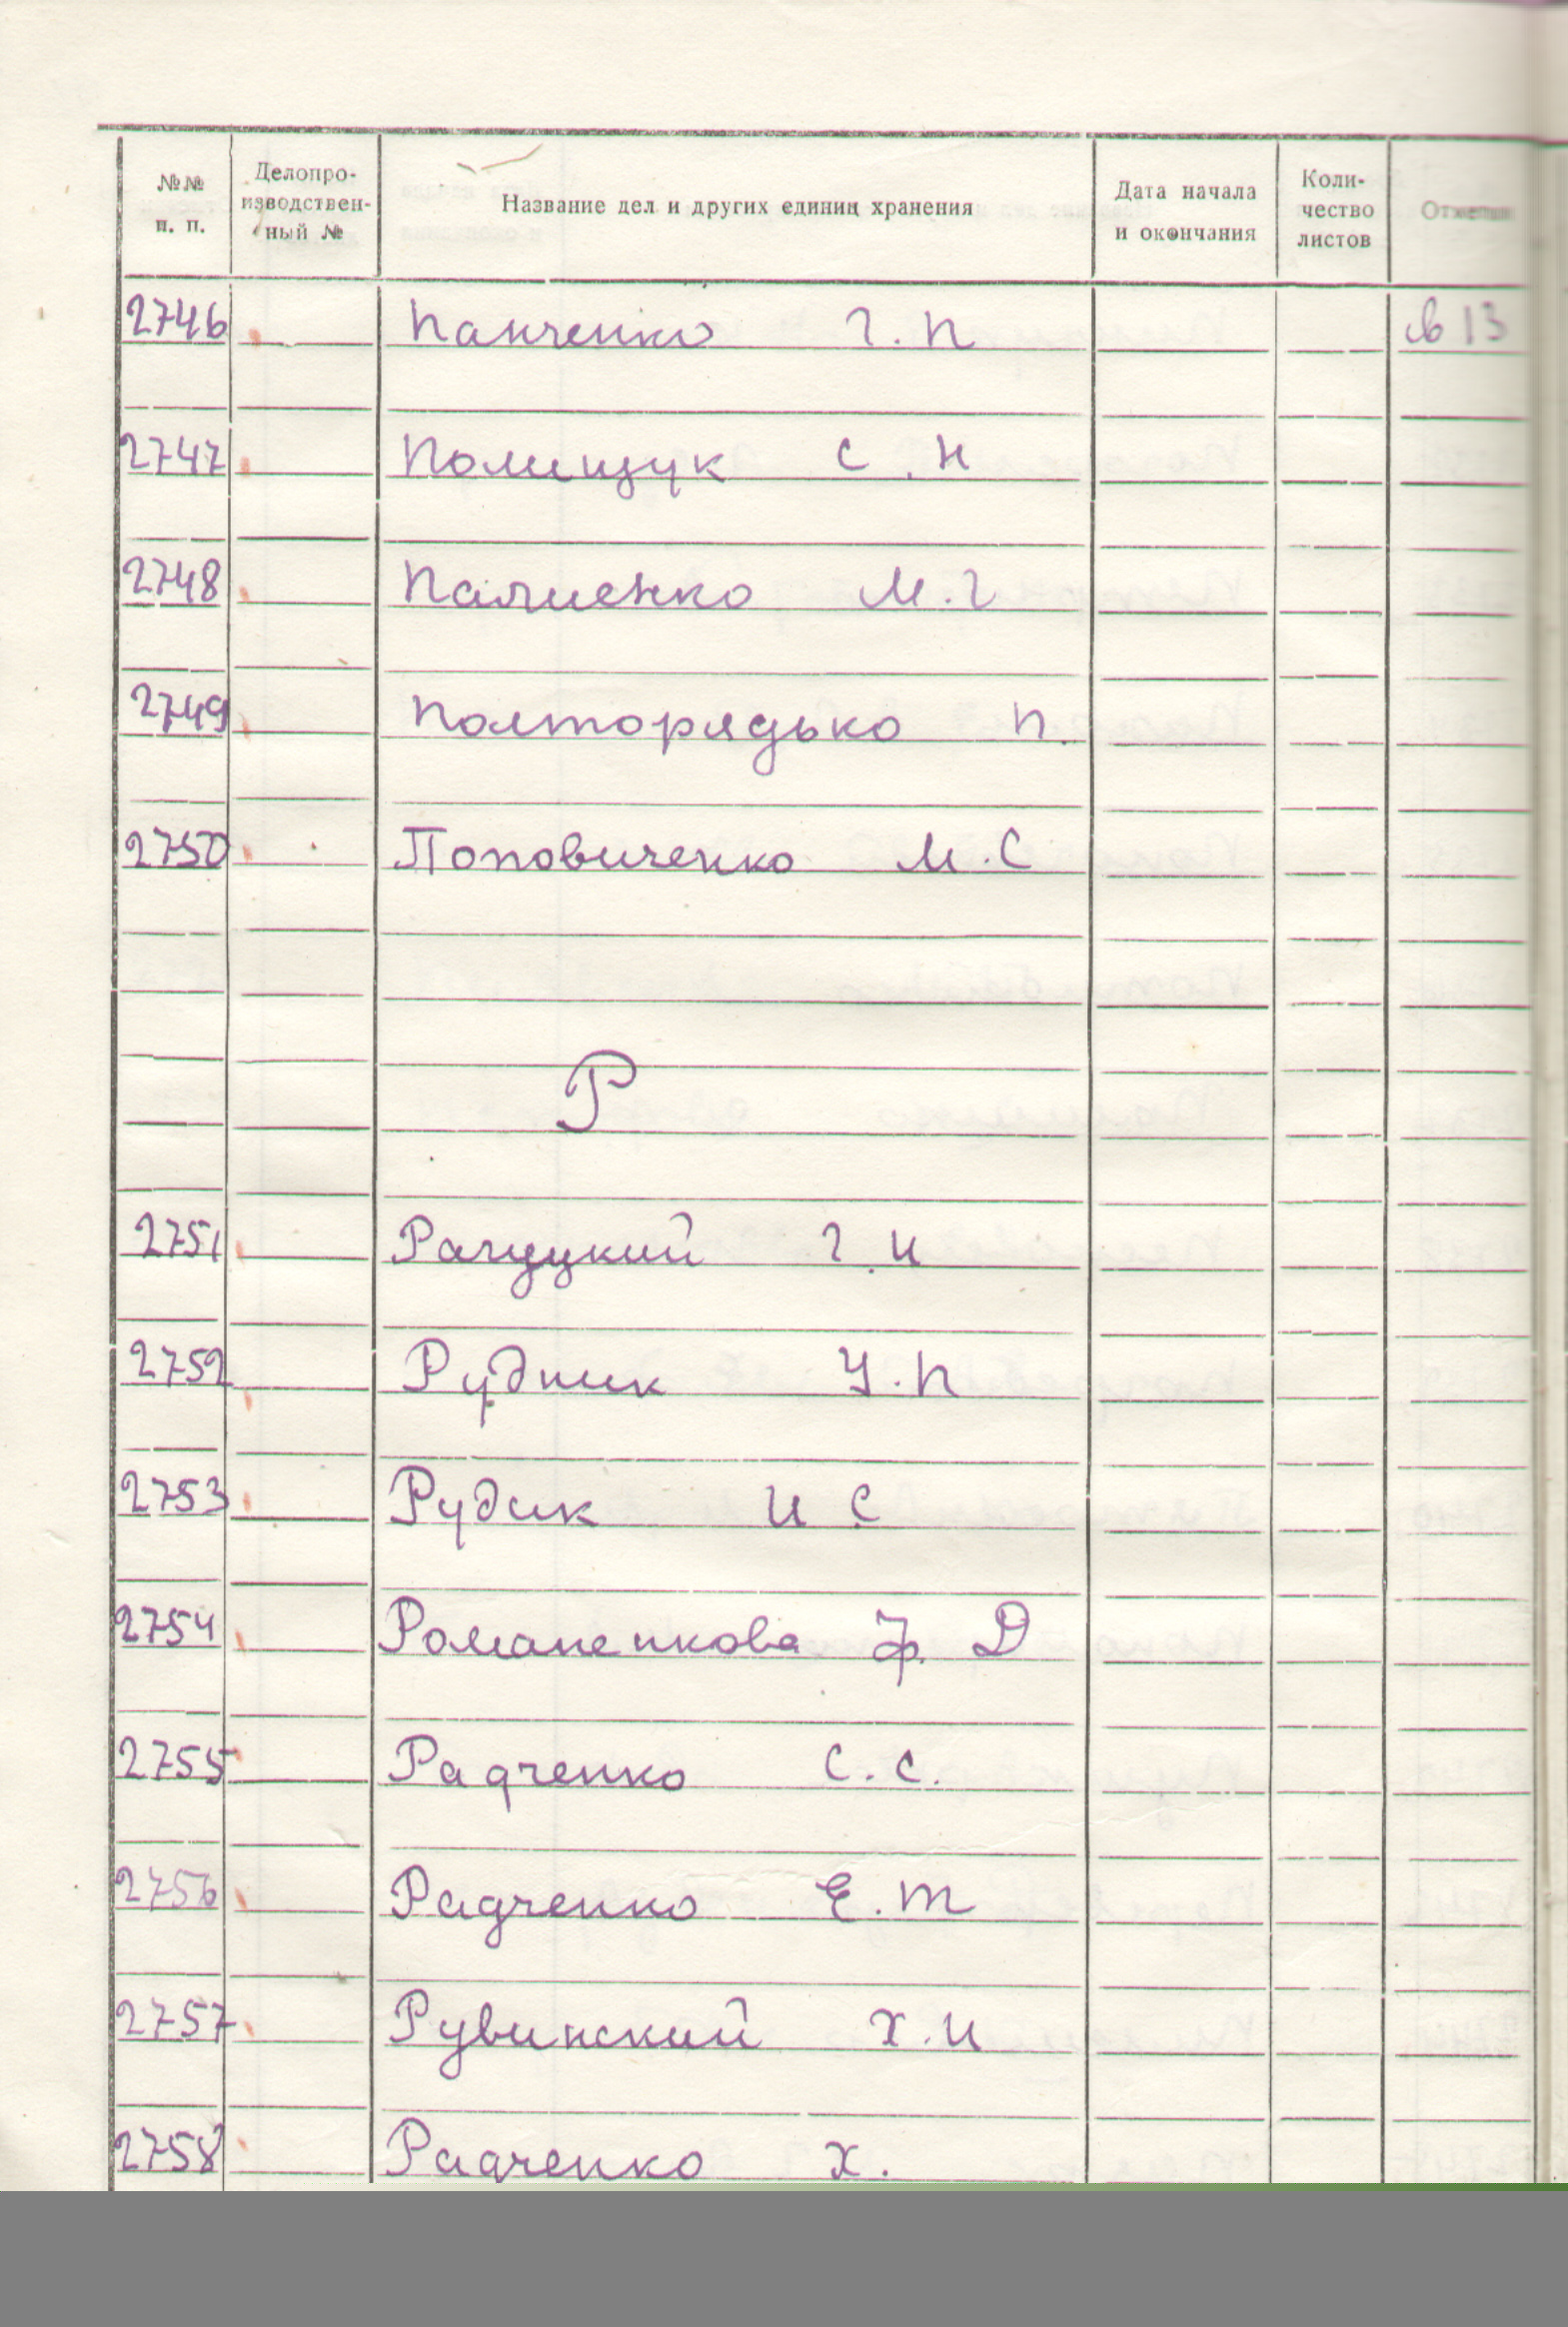 №№ п. п. Делопро-изводствен-ный № Название дел и других единиц хранения Дата начала и окончания Коли-чество листов Отметки
2746 Панченко Г. П
2747 Полищук С. Н
2748 Палиенко М. Г
2749 Полторядько П.
2750 Поповиченко М. С
Р
2751 Г. И
2752 Рудник У. П
2753 Рудик И С
2754 Романенкова Ф. Д
2755 Радченко С. С.
2756 Радченко Е. Т
2757 Рувинский Х. И
2758 Радченко Х.